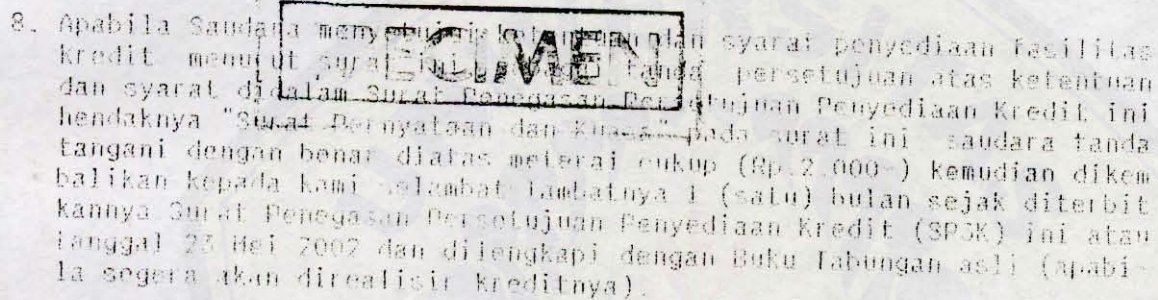 8. Apabila Saudara menyetujui ketentuan dan syarat penyediaan fasilitas
Kredit menurut surat ini tanda persetujuan atas ketentuan
dan syarat didalam Surat Penegasan Persetujuan Penyediaan Kredit ini
hendaknya "Surat Pernyataan dan Kuasa" pada surat ini saudara tanda
tangani dengan benar diatas meterai cukup (Rp.2.000-) kemudian dikem
balikan kepada kami selambat lambatnya 1 (satu) bulan sejak diterbit
kannya Surat Penegasan Persetujuan Penyediaan Kredit (SP3K) ini atau
tanggal 23 Mei 2002 dan dilengkapi dengan Buku Tabungan asli (apabi-
la segera akan direalisir kreditnya).
ECIMEN